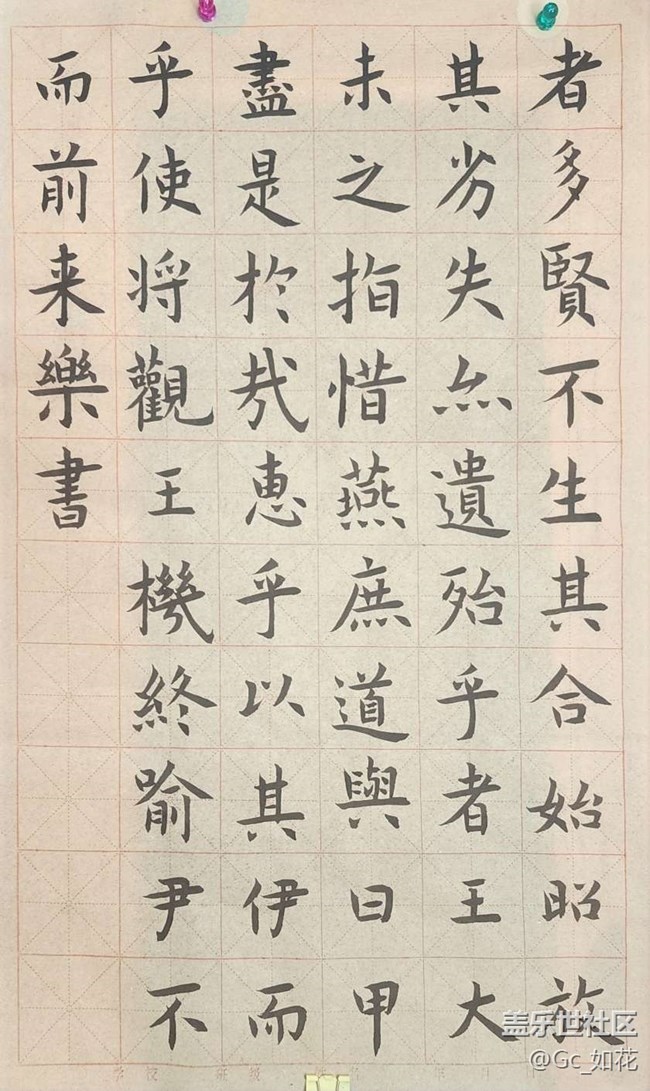 者多賢不生其合始昭
其劣失亦遺殆乎者王大
未之指惜燕庶道與曰甲
盡是於哉惠乎以其伊而
乎使将觀王機終喻尹不
而前来樂書
盖乐世社区
@Gc_如花